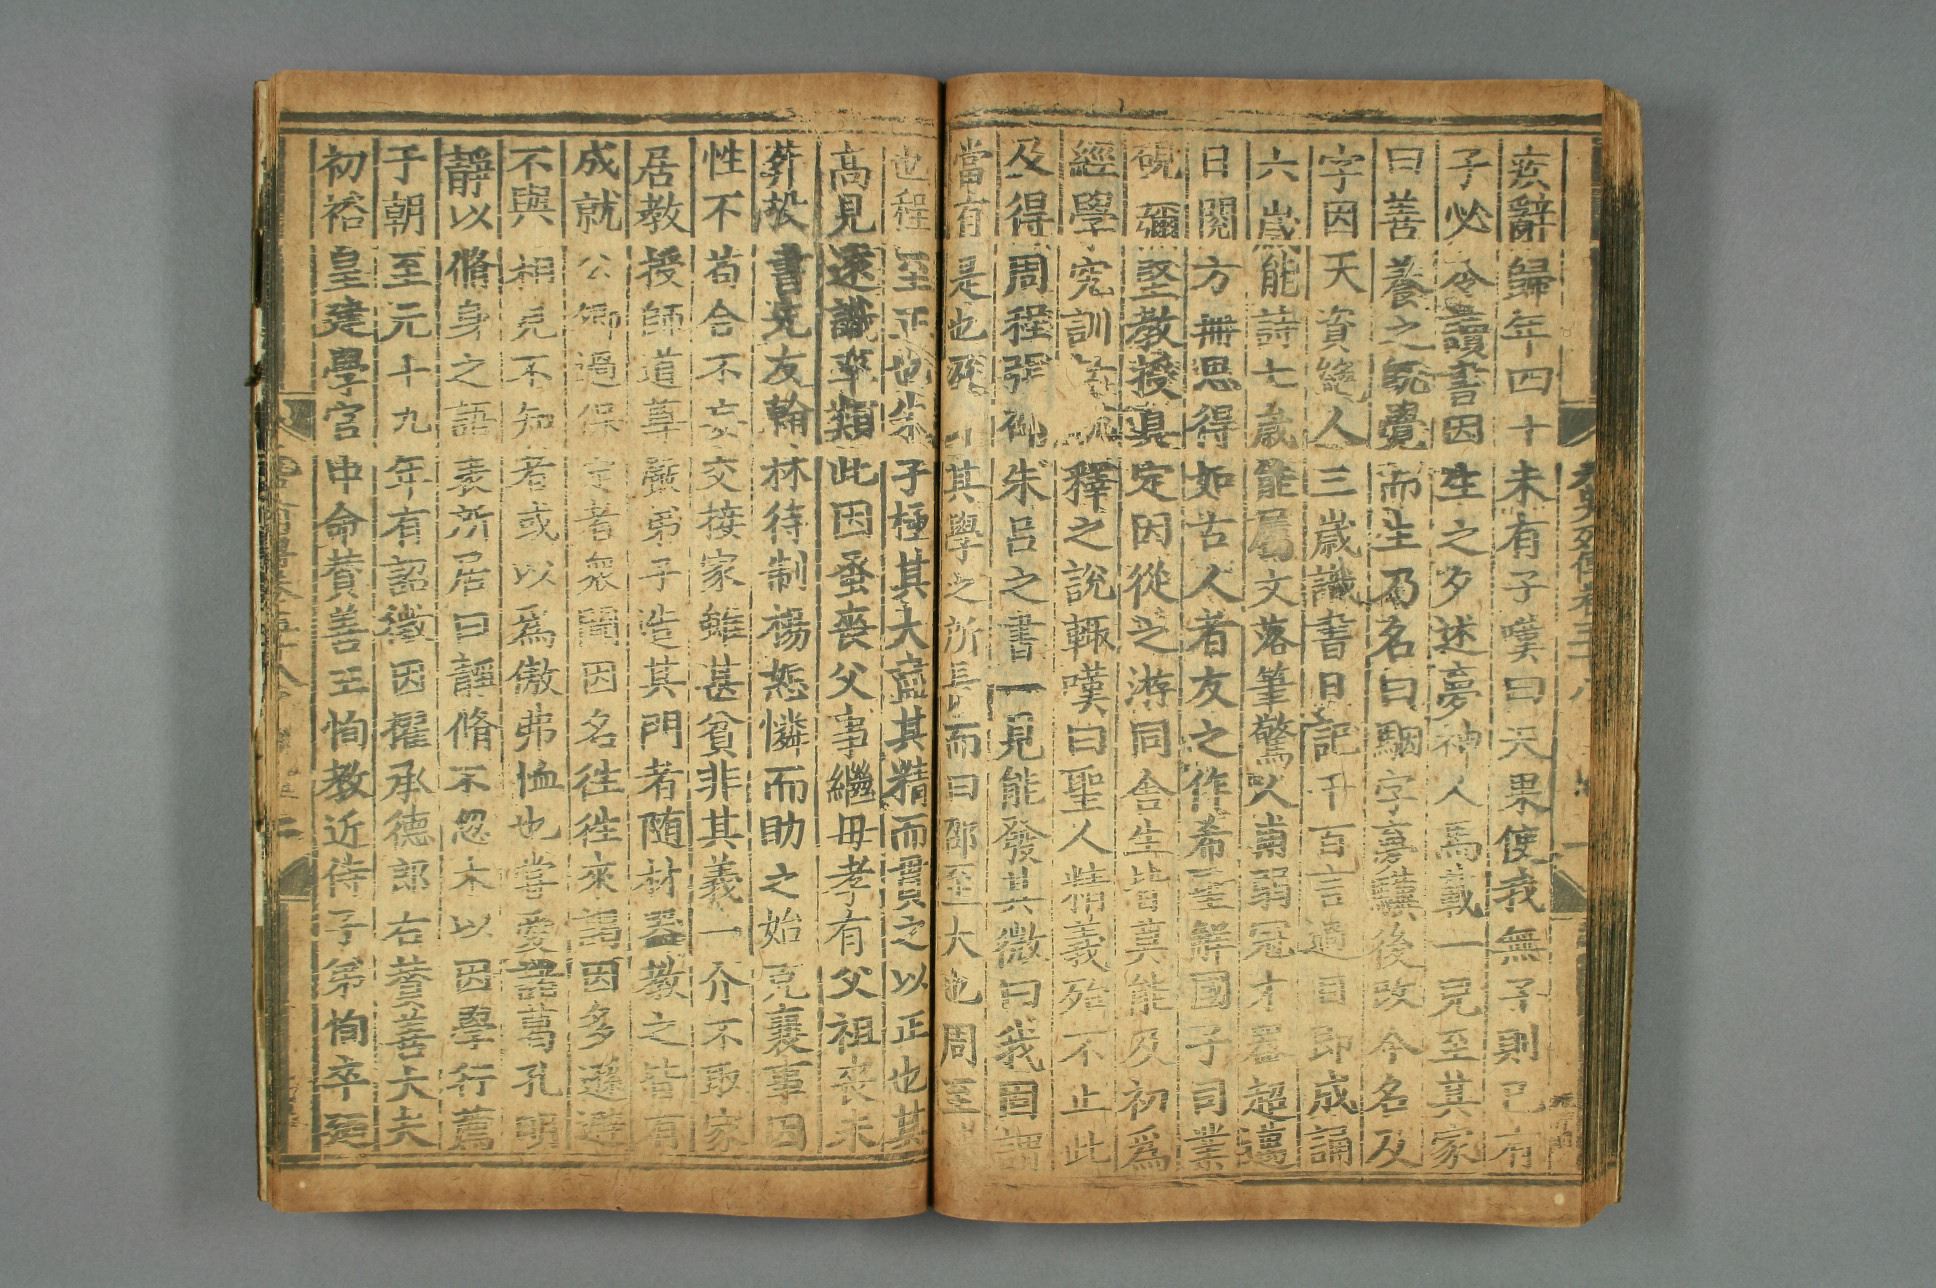 疾辭歸年四十未有子嘆曰天果使我無子則已有
子必令讀書因生之夕述夢神人馬載一兒至其家
曰善養之旣覺而生乃名曰駰字夢驥後改今名及
字因天資絶人三歲識書日記千百言過目即成誦
六歲能詩七歲能屬文落筆驚人甫弱冠才器超邁
日閱方冊思得如古人者友之作希聖解國子司業
硯彌堅教授真定因從之游同舍生皆莫能及初爲
經學究訓詁疏釋之說輒嘆曰聖人精義殆不止此
及得周程張邵朱呂之書一見能發其微曰我固謂
當有是也 其學之所長 而曰邵至大也周至
也程至正也朱子極其大盡其精而貫之以正也其
高見遠識率類此因蚤喪父事繼母孝有父祖喪未
葬投書先友翰林待制楊恕憐而助之始克襄事因
性不苟合不妄交接家雖甚貧非其義一介不取家
居教授師道尊嚴弟子造其門者随材器教之皆有
成就公卿過保定者衆聞因名往往來謁因多遜避
不與相見不知者或以爲傲弗恤也嘗愛諸葛孔明
靜以脩身之語表所居曰靜脩不忽木以因學行薦
于朝至元十九年有詔徵因擢承德郎右賛善大夫
初裕皇建學宮中命賛善王恂教近侍子弟恂卒廼